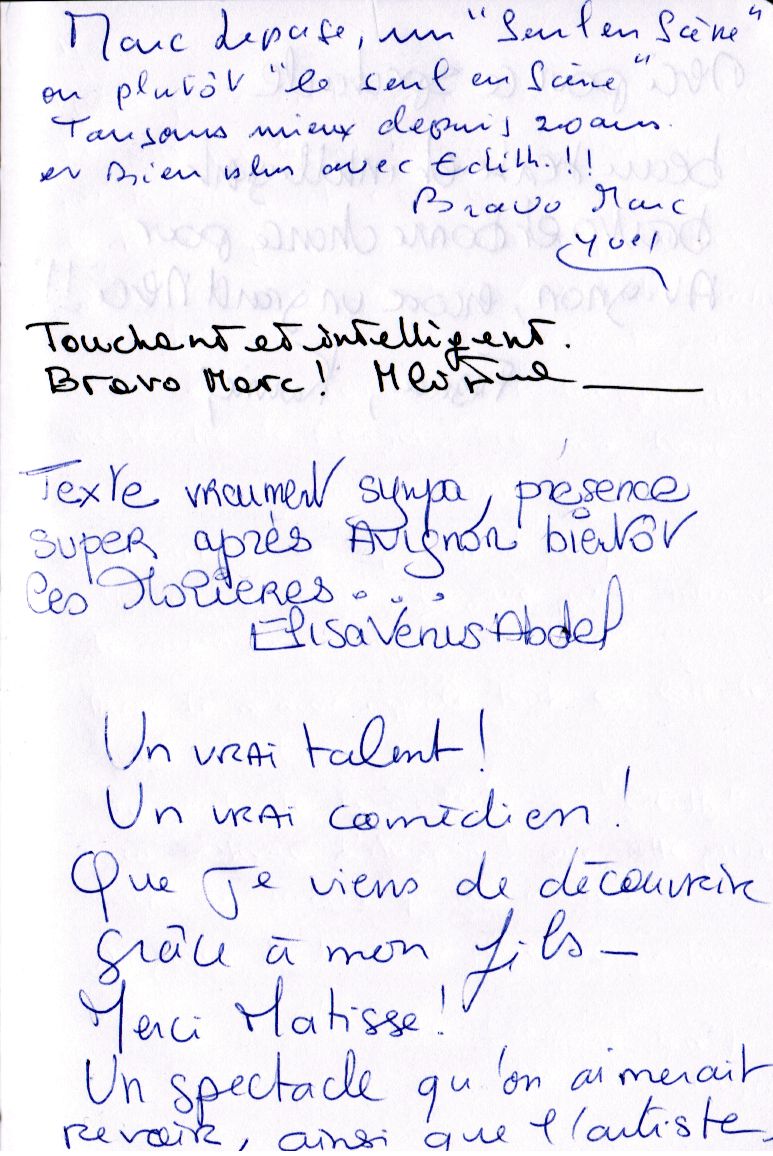 Marc depasse, un "Seul en Scène"
ou plutôt "le seul en Scène"
Toujours mieux depuis 20 ans.
et Bien plus avec Edith.!!
Bravo Marc
Touchant et intelligent.
Bravo Marc!
Texte vraiment sympa, présence
super après Avignon bientôt
les Molières...
Elisa Vénus Abdel
Un vrai talent!
Un vrai comédien!
Que je viens de découvrir
grâce à mon fils_
Merci Matisse!
Un spectacle qu'on aimerait
revoir, ainsi que l'artiste.